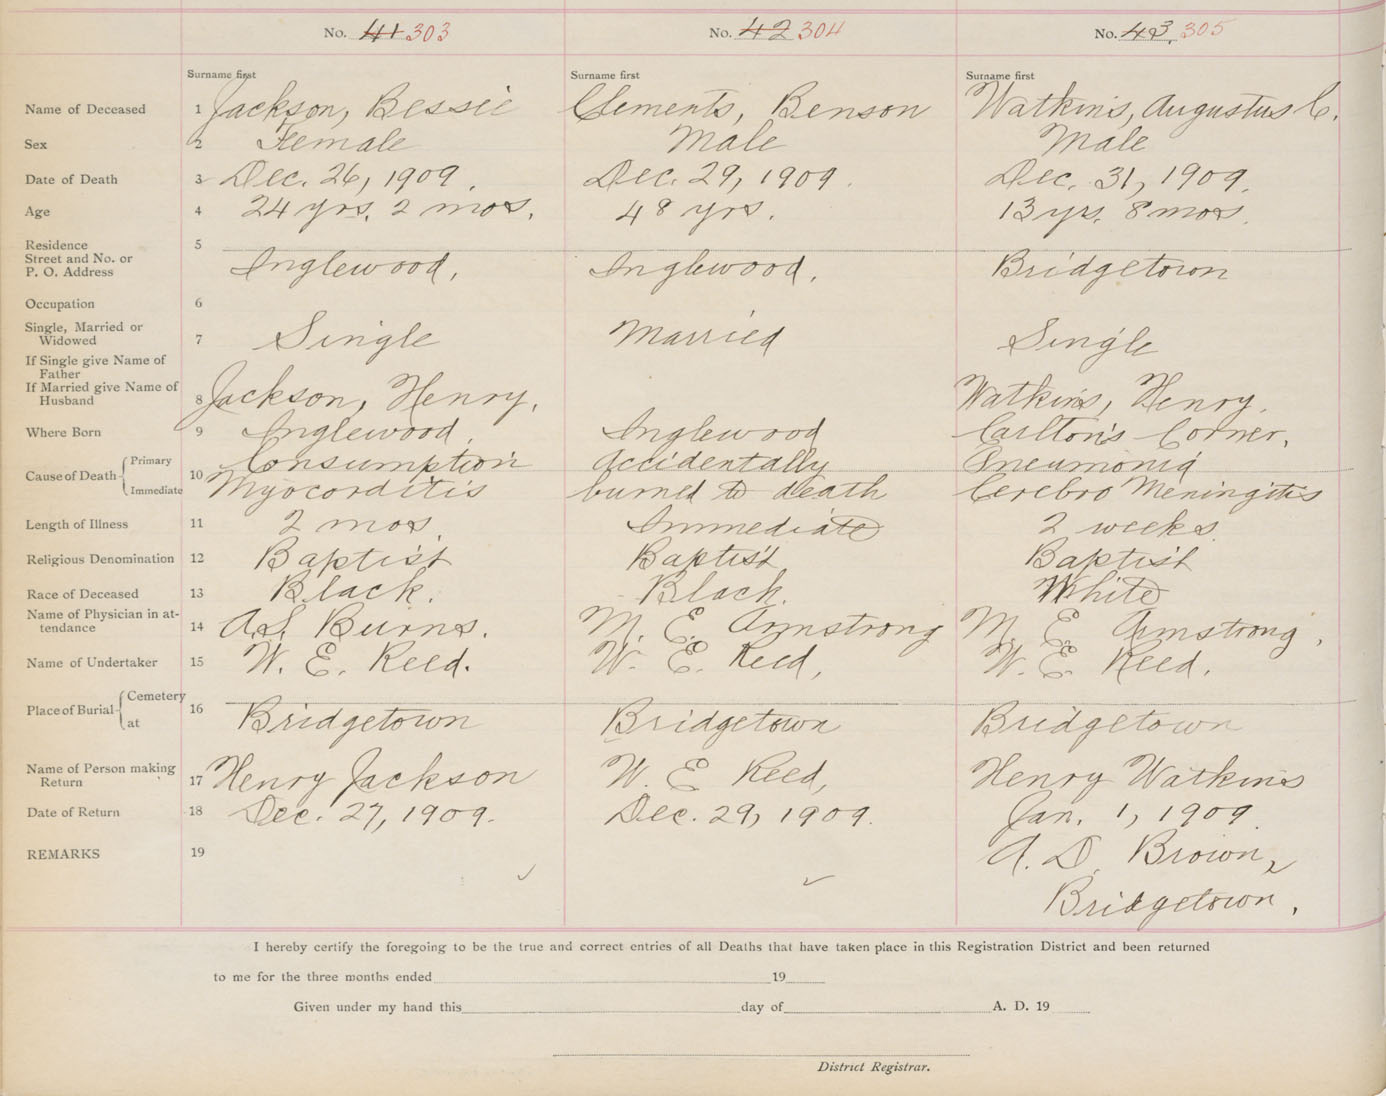 No. 41 303 No. 42 304 No. 43 305
Surname first Surname first Surname first
Name of Deceased 1 Jackson, Bessie Clements, Benson Watkins, Augustus C.
Sex 2 Female Male Male
Date of Death 3 Dec. 26, 1909. Dec. 29, 1909. Dec. 31, 1909.
Age 4 24 yrs. 2 mos. 48 yrs. 13 yrs. 8 mos.
Residence 5
Street and No. or
P. O. Address Inglewood. Inglewood. Bridgetown
Occupation 6
Single, Married or
Widowed 7 Single Married Single
If Single give Name of
Father
If Married give Name of
Husband 8 Jackson, Henry. Watkins, Henry.
Where Born 9 Inglewood. Inglewood Carlton's Corner.
Cause of Death 10 Primary Consumption Accidentally Pneumonia
Immediate Myocorditis burned to death Cerebro Meningitis
Length of Illness 11 2 mos. Immediate 2 weeks.
Religious Denomination 12 Baptist Baptist Baptist
Race of Deceased 13 Black. Black. White
Name of Physician in at-
tendance 14 A.S. Burns. M. E. Armstrong M. E. Armstrong.
Name of Undertaker 15 W. E. Reed. W. E. Reed, W. E. Reed.
Place of Burial 16 Cemetery
at Bridgetown Bridgetown Bridgetown
Name of Person making
Return 17 Henry Jackson W. E Reed, Henry Watkins
Date of Return 18 Dec. 27, 1909. Dec. 29, 1909. Jan. 1, 1909.
REMARKS 19 A. D. Brown,
Bridgetown.
I hereby certify the foregoing to be the true and correct entries of all Deaths that have taken place in this Registration District and been returned
to me for the three months ended 19
Given under my hand this day of A. D. 19
District Registrar.